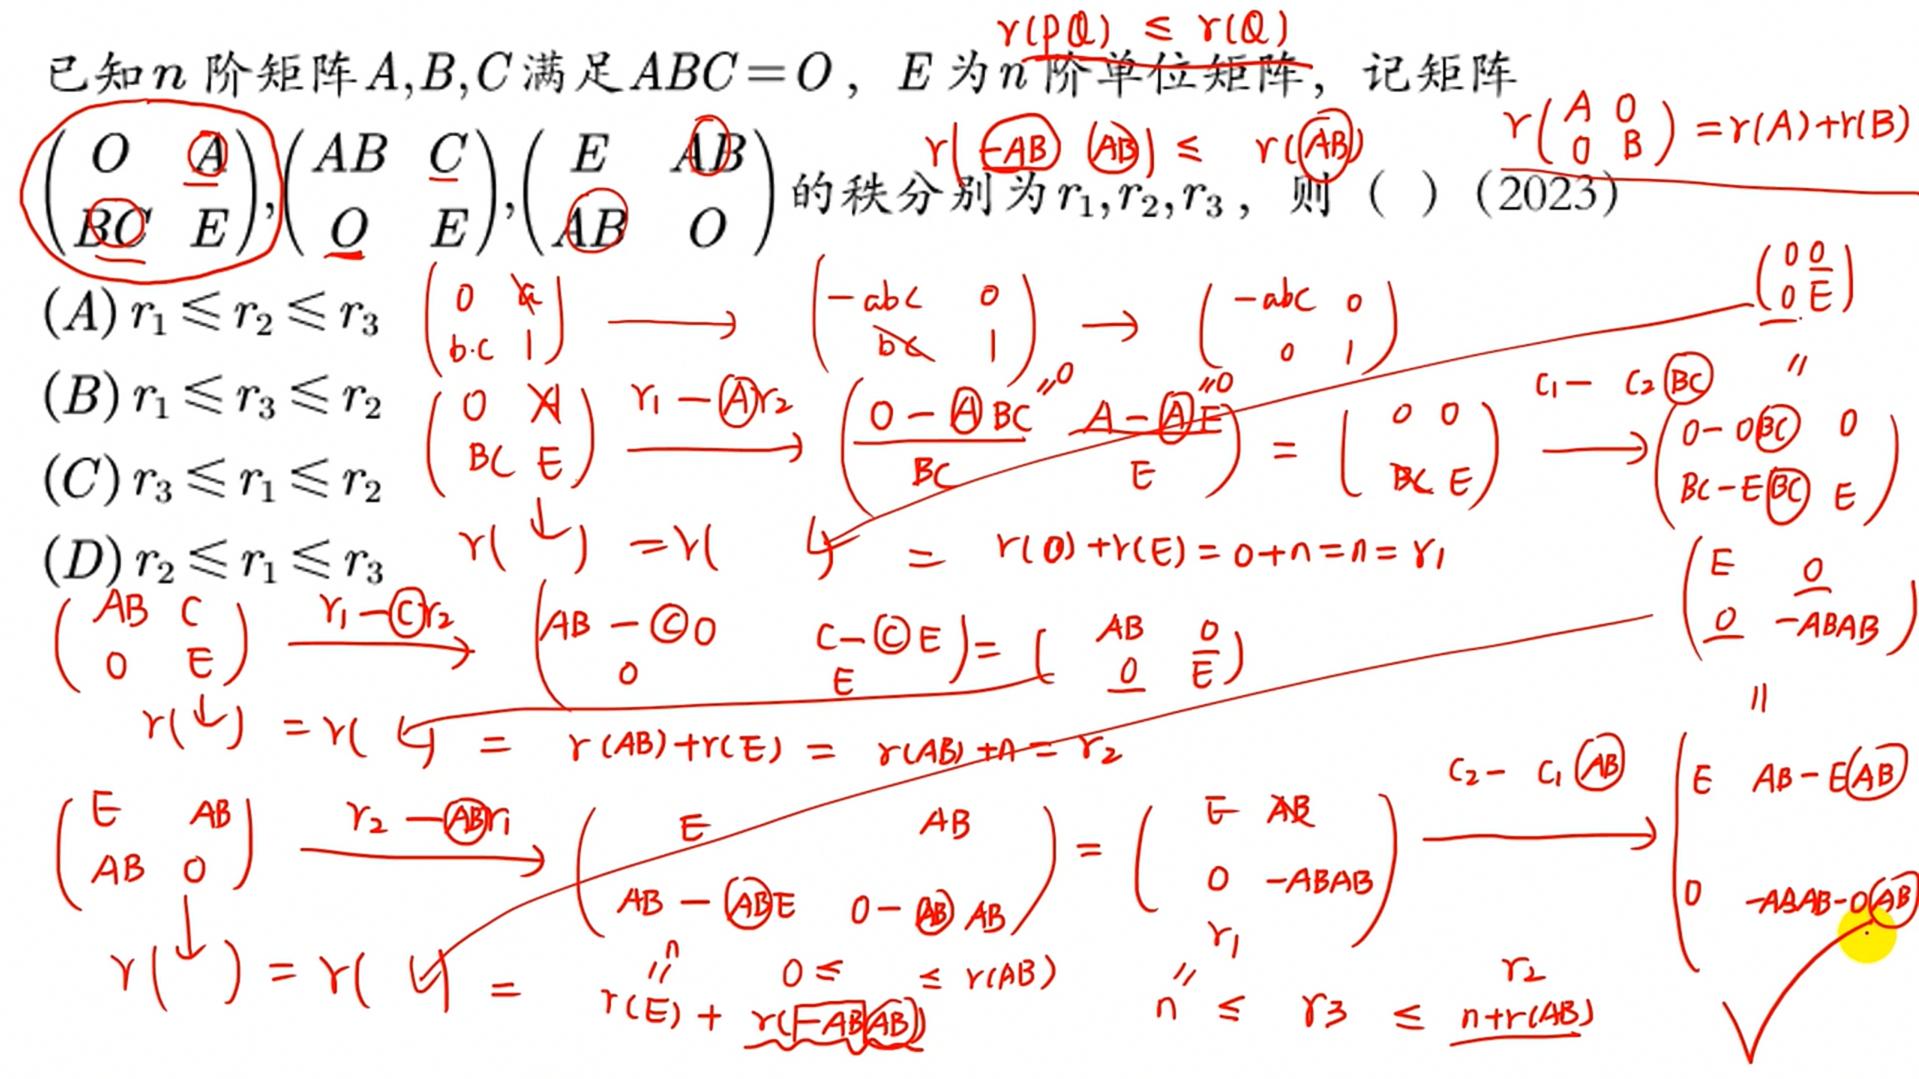 r(PQ) ≤ r(Q)
已知n 阶矩阵A,B,C满足ABC=O，E为n阶单位矩阵，记矩阵
(O A; BC E),(AB C; O E),(E AB; AB O)的秩分别为r₁,r₂,r₃，则（ ）(2023)
r(-AB (AB)) ≤ r(AB)
r(A 0; 0 B) = r(A)+r(B)
(A) r₁ ≤ r₂ ≤ r₃
(B) r₁ ≤ r₃ ≤ r₂
(C) r₃ ≤ r₁ ≤ r₂
(D) r₂ ≤ r₁ ≤ r₃
(0 a; b·c 1) → (-abc 0; bc 1) → (-abc 0; 0 1)
(0 0; 0 E)
(0 A; BC E) r₁-Ar₂ → (0-ABC A-AE; BC E) = (0 0; BC E) c₁-c₂BC → (0-0BC 0; BC-EBC E)
"0 "0
r(↓) = r( ) = r(0)+r(E)=0+n=n=r₁
(AB C; 0 E) r₁-Cr₂ → (AB-C0 C-CE; 0 E) = (AB 0; 0 E)
(E 0; 0 -ABAB)
r(↓) = r( ) = r(AB)+r(E) = r(AB)+n = r₂
(E AB; AB 0) r₂-ABr₁ → (E AB; AB-ABE 0-AB AB) = (E AB; 0 -ABAB) c₂-c₁AB → (E AB-EAB; 0 -ABAB-0AB)
r(↓) = r( ) = r(E)+r(-AB(AB))
n 0 ≤ ≤ r(AB)
r₁ r₂
n ≤ r₃ ≤ n+r(AB)